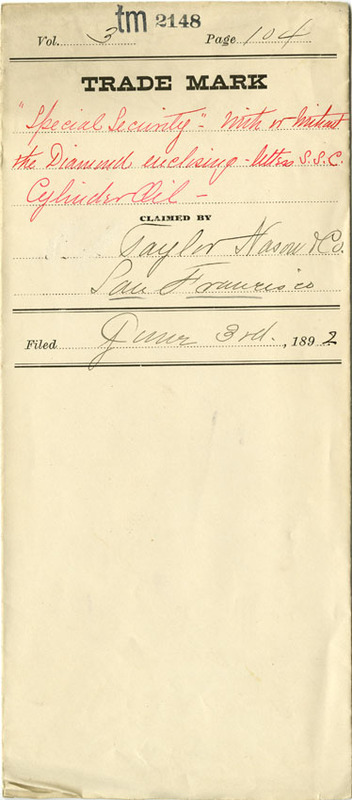 tm 2148
Vol. 3 Page 104
TRADE MARK
"Special Security" - With or Without
the Diamond enclosing - letters S.S.C.
Cylinder Oil -
CLAIMED BY
Taylor Nason & Co.
San Francisco
Filed June 3rd., 1892